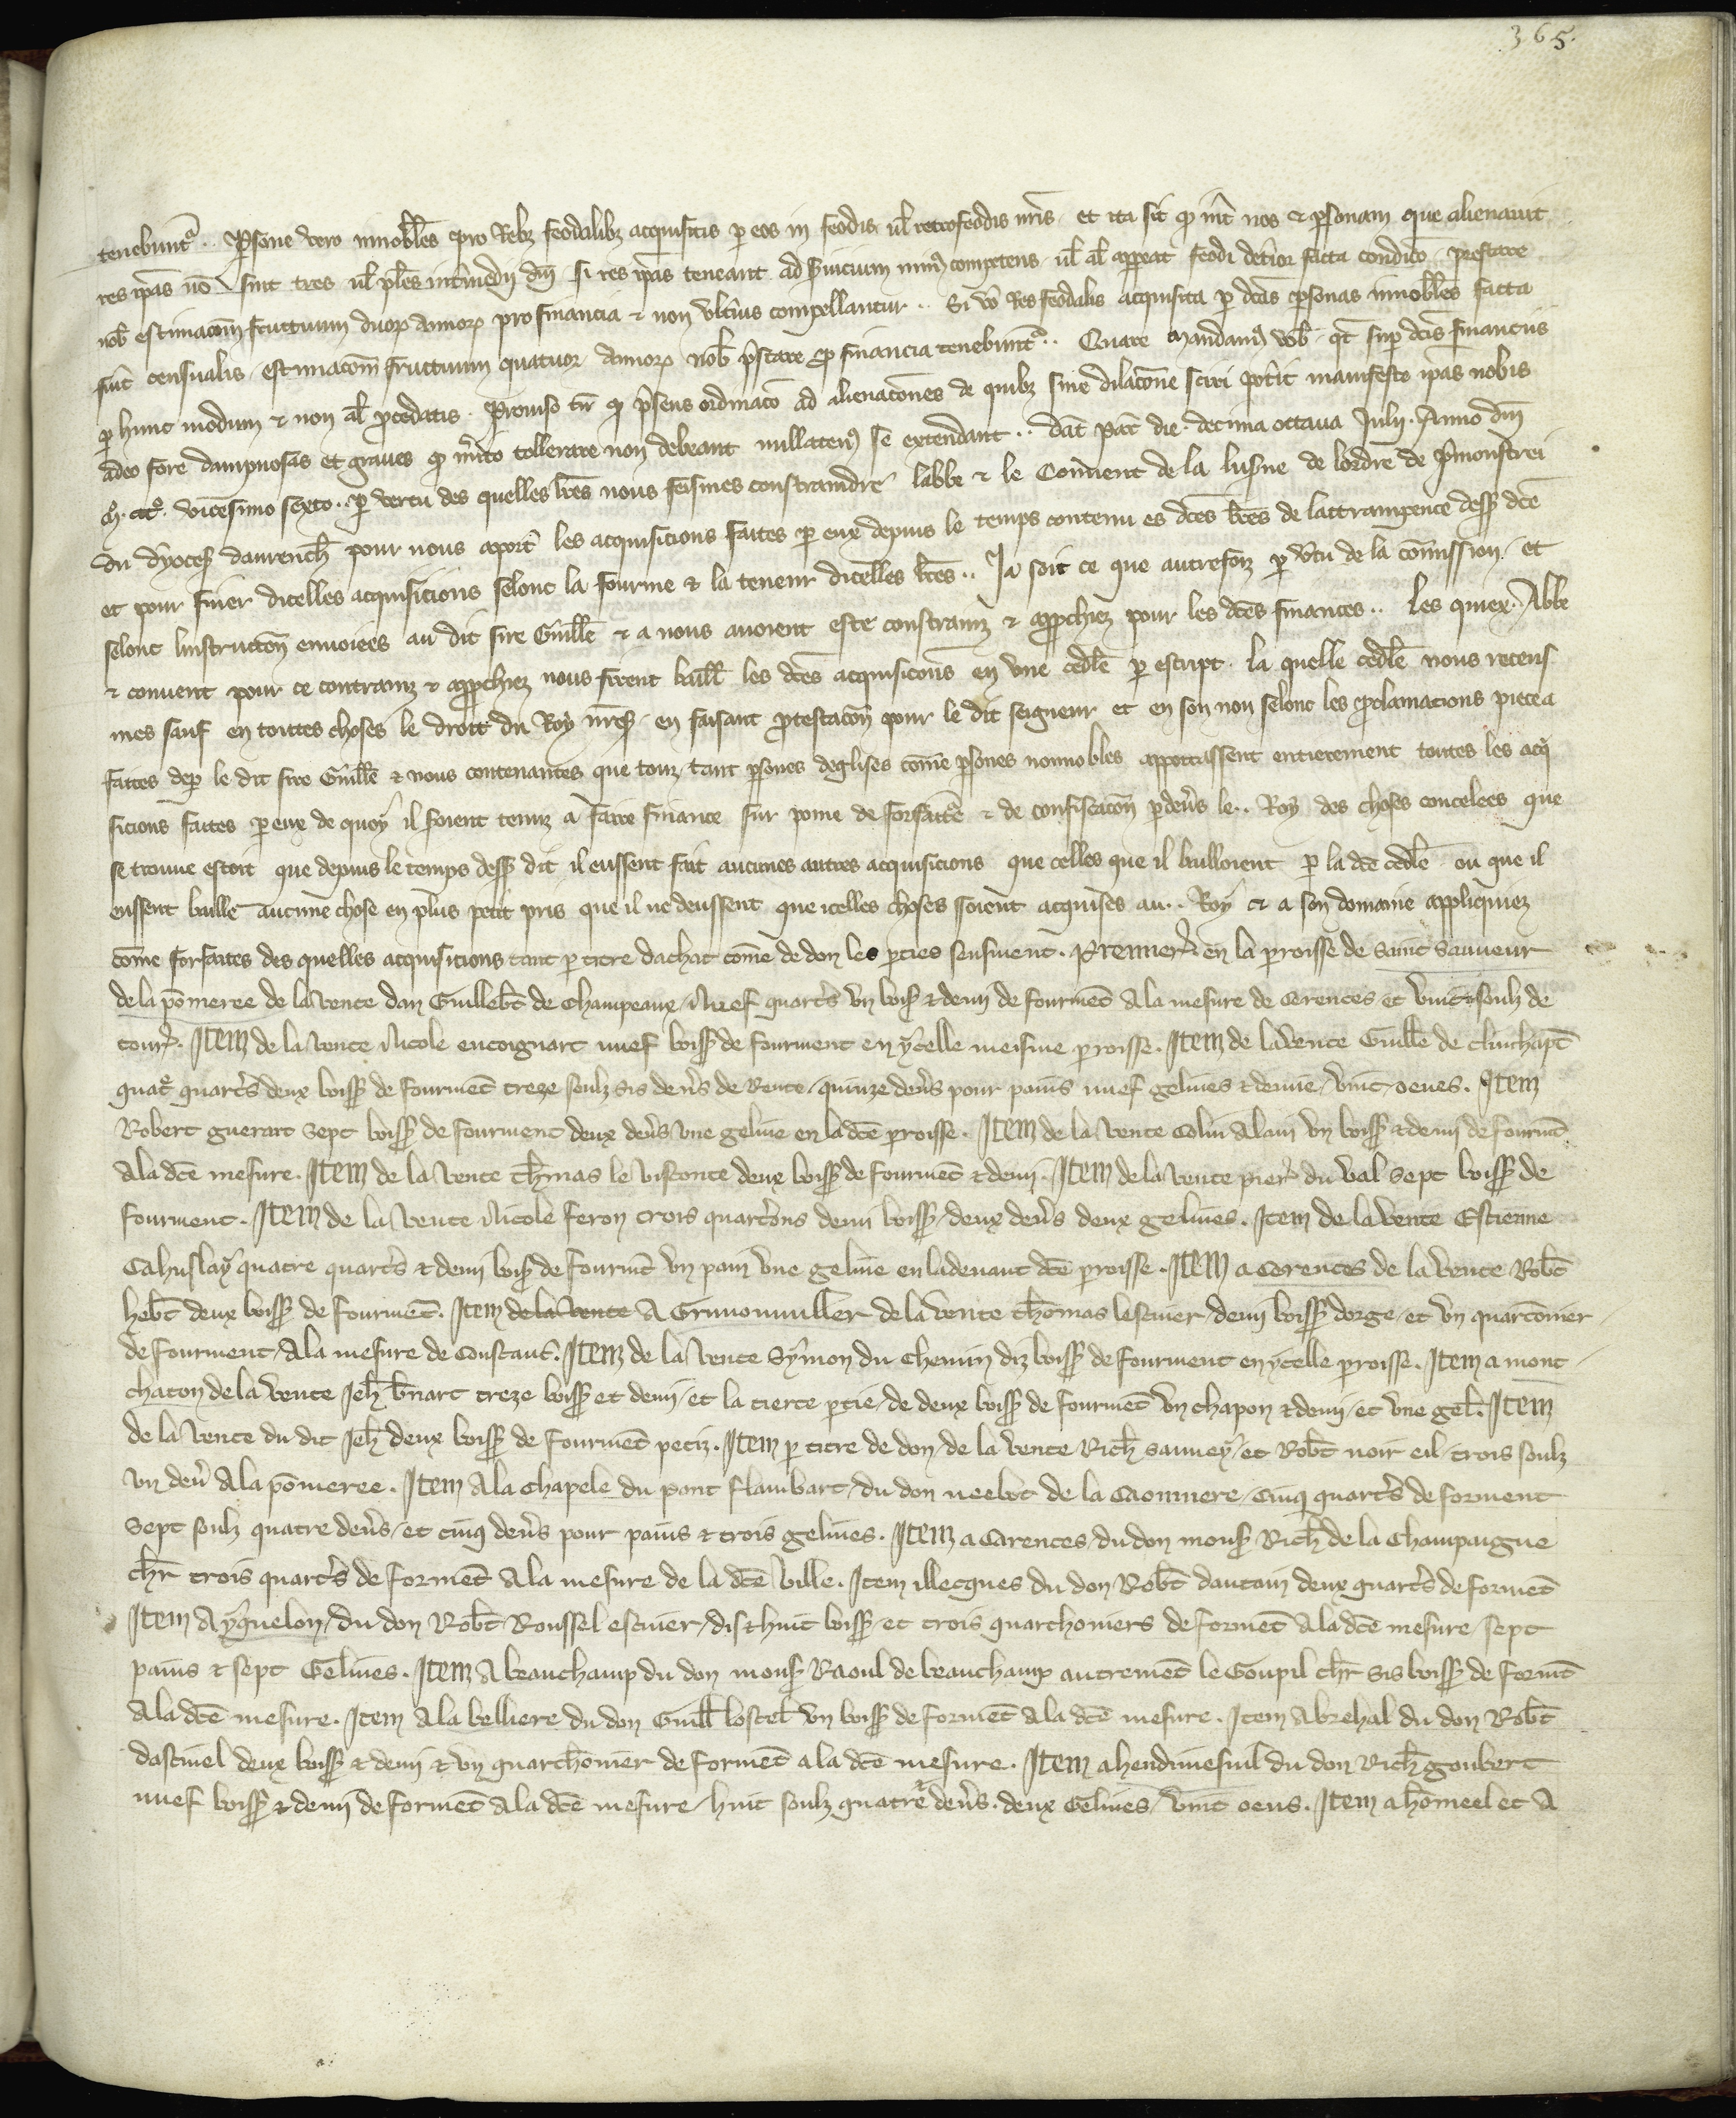 365.
tenebunt᷑. Psone vero innobiles pro rebȝ feodalibȝ acquisitis per eos in feodis ul retrofeodis nris et ita sit qd int nos & psonam que alienavit
res ipas nō sint tres ul ples intmedii dni si res ipas teneant ad svicium minꝰ competens ul al appeat feodi detior facta condicio prestare
nob estimacōm fructuum duorȝ annorȝ pro financia & non ultius compellantur. Si vo res feodalis acquisita p dcas psonas innobiles facta
fuit censualis estimacōm fructuum quatuor annorȝ nob pstare pro financia tenebunt᷑. Quare mandamꝰ vob qt sup dcis financiis
p hunc modum & non al pcedatis. Proviso tn qd psens ordinacō ad alienacōnes de quibȝ sine dilacōne sciri potit manifeste ipas nobis
adeo fore dampnosas et graves qd mito tollerare non debeant nullatenꝰ se extendant. dat Par die decima octava Julii Anno dni
M. CCCo. vicesimo sexto. p vertu des quelles lres nous feismes constraindre labbe & le Convent de la luserne de lordre de Pmonstrei
du dyoces davrench pour nous aport les acquisicions faites p eux depuis le temps contenu es dces lres de lattrampence dess dce
et pour finer dicelles acquisicions selonc la fourme & la teneur dicelles lres. Ja soit ce que autrefoiz p vtu de la comission et
selonc linstructōn envoiees au dit sire Guille & a nous avoient este constrainz & approchiez pour les dces finances. Les quiex Abbe
& convent pour ce contrainz & approchiez nous firent baill les dces acquisicōns en une cedle p escript la quelle cedle nous receus
mes sauf en toutes choses le droit du Roy nres en faisant protestacōn pour le dit seigneur et en son non selonc les proclamacions pieca
faites dep le dit sire Guille & nous contenantes que touz tant psones deglises cōme psones nonnobles apportassent entierement toutes les acq
sicions faites p eux de quoy il soient tenuz a faire finance sur poine de forfaite & de confiscacōn pdevs le Roy des choses concelees que
se trouve estoit que depuis le temps dess dit il eussent fait aucunes autres acquisicions que celles que il bailloient p la dce cedle ou que il
eussent baille aucune chose en plus petit pris que il ne deussent que icelles choses soient acquises au Roy & a son domaine appliquiez
cōme forfaites des quelles acquisicions tant p titre dachat cōme de don les pties sensuient. Premier. en la proisse de saint sauveur
de la pōmeree de la vente dan Guillebt de Champeaux nuef quarts un boiss & demi de fourmēt a la mesure de Cerences et vint soulz de
tourn. Item de la vente Nicole encoignart nuef boiss de fourment en ycelle meisme proisse. Item de la vente Guille de clinchapt
quat quarts deux boiss de fourmēt treze soulz sis devs de rente quinze devs pour pains nuef gelines & demie vint oeues. Item
Robert guerart sept boiss de fourment deux devs une geline en la dce proisse. Item de la vente Colin Alain un boiss & demi de fourmt
a la dce mesure. Item de la vente Thmas le visconte deux boiss de fourmēt & demi. Item de la vente pierr du val sept boiss de
fourment. Item de la vente Nicole feron trois quartōns demi boiss deux devs deux gelines. Item de la vente Estienne
Cahuslay quatre quarts & demi boiss de fourmt un pain une geline en la devant dce proisse. Item a Cerences de la vente Robt
hebt deux boiss de fourmēt. Item de la vente A Grimonviller de la vente Thōmas lescuier demi boiss dorge et un quartōnier
de fourment a la mesure de Constant. Item de la vente Symon du chemin diz boiss de fourment en ycelle proisse. Item a mont
chaton de la vente Jeh bnart treze boiss et demi et la tierce ptie de deux boiss de fourmēt un chapon & demi et une gel. Item
de la vente du dit Jeh deux boiss de fourmēt petiz. Item p titre de don de la vente Rich sauvey et Robt noir eil trois soulz
un dev a la pōmeree. Item a la chapele du pont flambart du don neelot de la Caonniere cinq quarts de forment
sept soulz quatre devs et cinq devs pour pains & trois gelines. Item a Carences du don mons Rich de la Champaigne
chr trois quarts de formēt a la mesure de la dce ville. Item illecques du don Robt dantain deux quarts de formēt
Item A yquelon du don Robt Roussel escuier dis & huit boiss et trois quarthoniers de formēt a la dce mesure sept
pains & sept Gelines. Item A beauchamp du don mons Raoul de beauchamp autremēt le Goupil chr sis boiss de formt
a la dce mesure. Item a la belliere du don Guill lostel un boiss de formēt a la dce mesure. Item a brehal du don Robt
dascinel deux boiss & demi & un quarthōnier de formēt a la dce mesure. Item a hendimesnil du don Rich goubert
nuef boiss & demi de formēt a la dce mesure huit soulz quatre devs deux Gelines vint oeus. Item a hōmeel et A